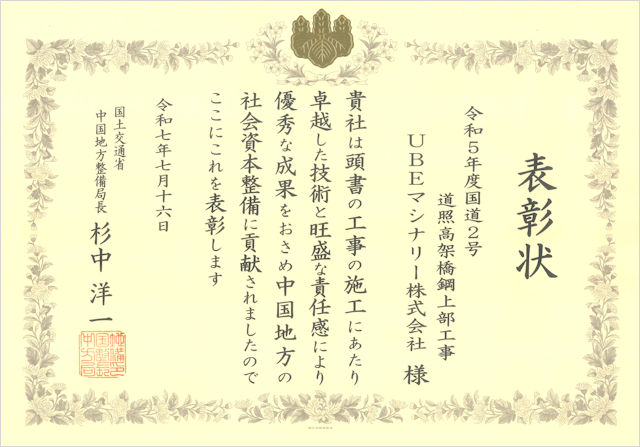 表彰状
令和5年度国道2号
道照高架橋鋼上部工事
UBEマシナリー株式会社 様
貴社は頭書の工事の施工にあたり
卓越した技術と旺盛な責任感により
優秀な成果をおさめ中国地方の
社会資本整備に貢献されましたので
ここにこれを表彰します
令和七年七月十六日
国土交通省
中国地方整備局長 杉中 洋一